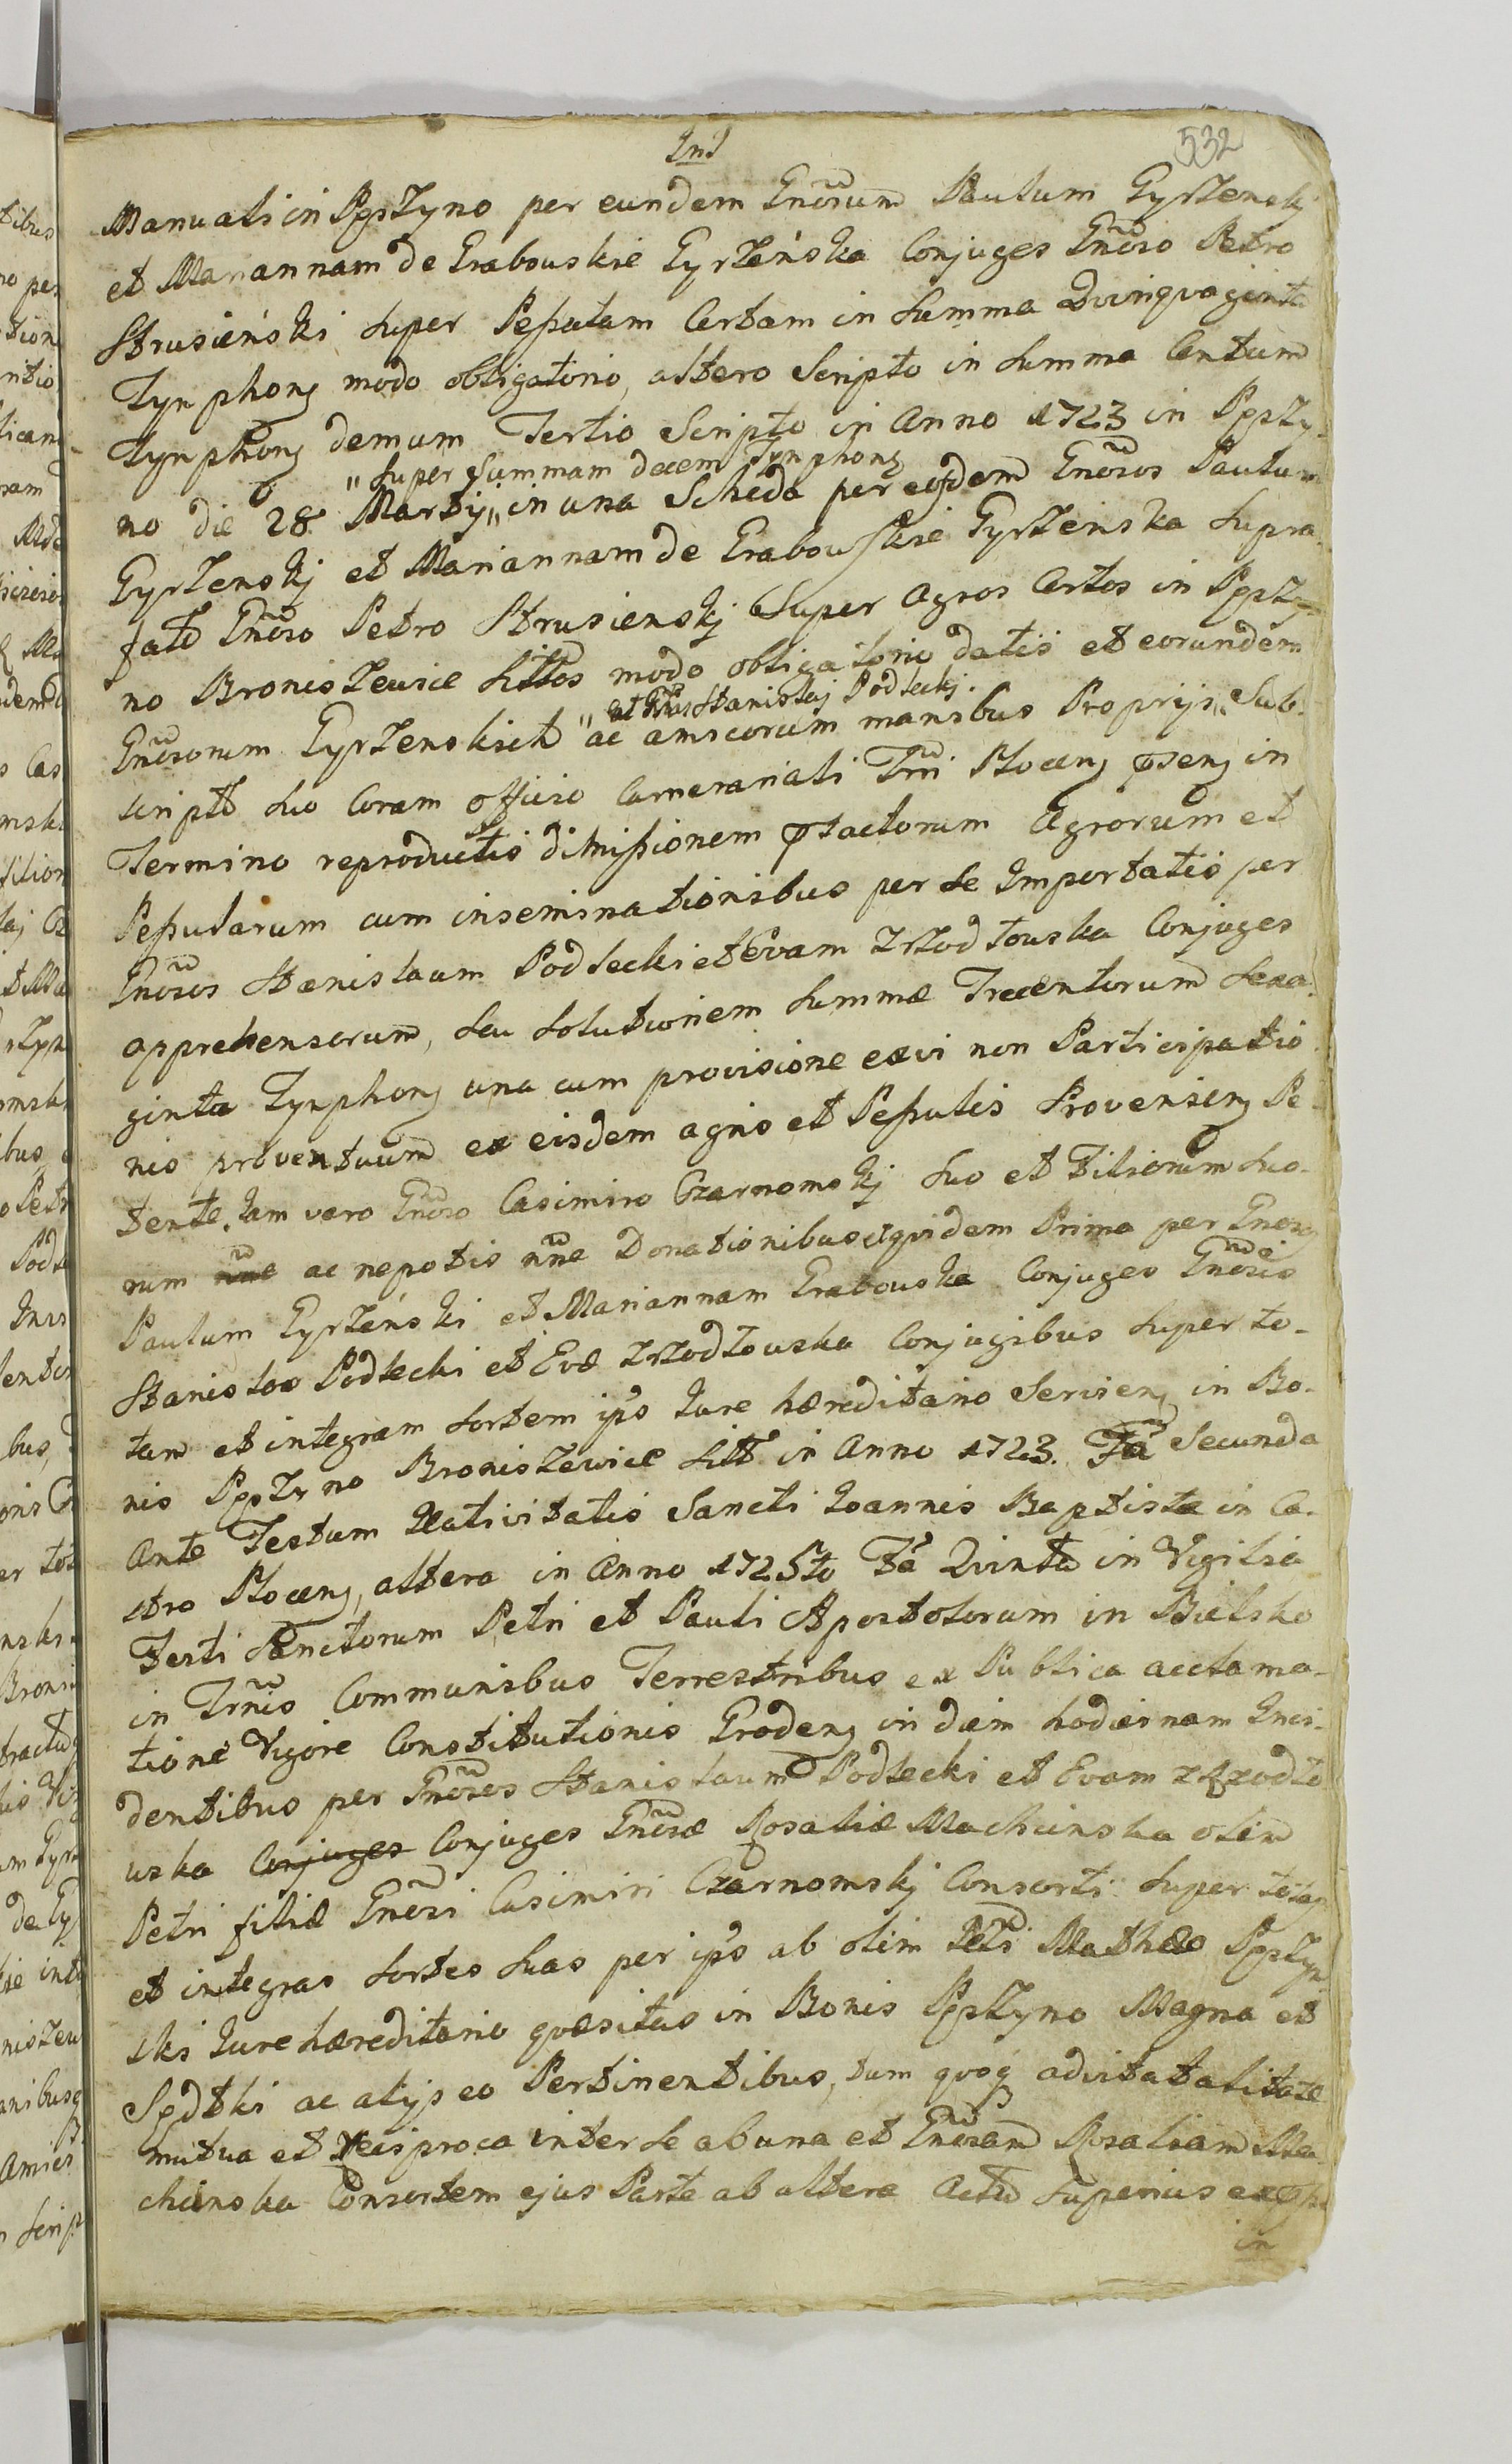 532
Manuali in Pgszyno per eundem Gnõsum Paulum Gyrzenskj
et Mariannam de Grabouskie Gyrzeńska Conjuges Gnõso Petro
Strusieński super Peputam Certam in Summa Quinquaginta
Tynphonj modo obligatorio, altero Scripto in Summa Centum
Tynphonj demum Tertio Scripto in Anno 1723 in Pgszy-
„ Super Summam decem Tynphonj
no die 28. Martij „ in una Scheda per eosdem Gnõsos Paulum
Gyrzenskj et Mariannam de Grabouskie Gyrzenska supra-
fato Gnõso Petro Strusienskj Super Agros Certos in Pgszy-
no Broniszewice sittos modo obligatorio datis et eorundem
„ et Gnõs Stanislaj Podleckj.
Gnõsorum Gyrzenskich ac amicorum manibus Proprijs „ Sub-
scripto suo Coram officio Camerariali Trñi Plocenj in
Termino reproductis dimissionem Agrorum et
Peputarum cum inseminationibus per se Importatis per
Gnõsos Stanislaum Podlecki et Evam Zrzodlouska Conjuges
apprehensorum, seu solutionem Summæ Trecentorum sexa-
ginta Tynphonj una cum provisione exvi non Participatio-
nis proventuum ex eisdem agris et Peputis Provenienj Pe-
tente. Iam vero Gnõso Casimiro Czarnomskj suo et Filiorum suo-
rum nñe ac nepotis nñe Donationibus equidem Prima per Gnosj
Paulum Gyrzeński et Mariannam Grabouska Conjuges Gnõsis
Stanislao Podlecki et Evæ Zrzodlouska Conjugibus super to-
tam et integram sortem ips Iure hæreditario Servienj in Bo-
nis Pgszyno Broniszewice sitt in Anno 1723. Fã Secunda
Ante Festum Nativitatis Sancti Ioannis Baptistæ in Ca-
stro Plocenj, altera in Anno 1725to Fã Quinta in Vigilia
Festi Sanctorum Petri et Pauli Apostolorum in Bielsko
in Trñis Communibus Terrestribus ex Publica acclama-
tione Vigore Constitutionis Grodenj in diem hodiernam Inci-
dentibus per Gnõsos Stanislaum Podlecki et Evam Zrzodlo
uska Conjuges Conjuges Gnõsæ Rosaliæ Machcinska olim
Petri filiæ Gnõsi Casimiri Czarnomskj Consorti super totas
et integras sortes suas per ips ab olim Matheo Pgszyn
ski Iure hæreditario quæsitas in Bonis Pgszyno Magna et
Sgdtki ac alijs eo Pertinentibus, tum quoq advitalitate
mutua et Reciproca inter se ab una et Gnõsam Rosaliam Ma-
chcinska Consortem ejus Parte ab altera Actu Superius
in